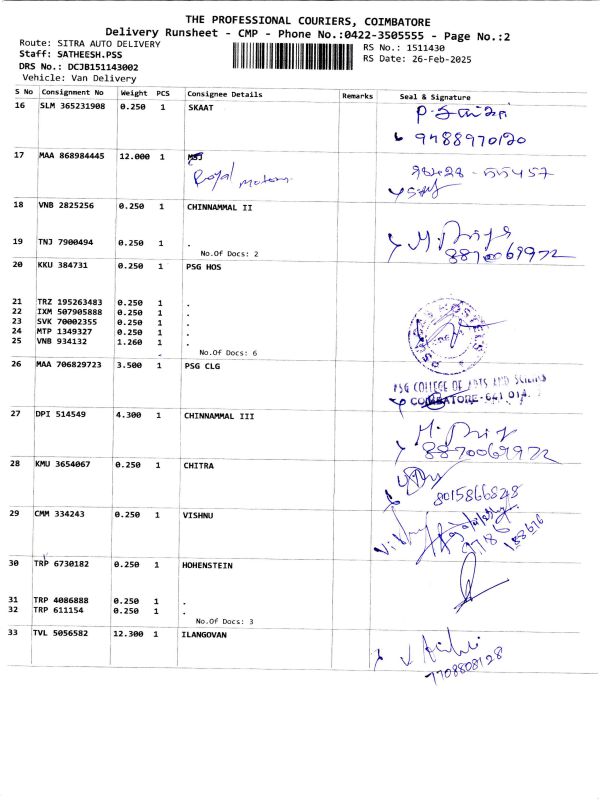 THE PROFESSIONAL COURIERS, COIMBATORE
Delivery Runsheet - CMP - Phone No.:0422-3505555 - Page No.:2
Route: SITRA AUTO DELIVERY
RS No.: 1511430
Staff: SATHEESH.PSS
RS Date: 26-Feb-2025
DRS No.: DCJB151143002
Vehicle: Van Delivery
S No Consignment No Weight PCS Consignee Details Remarks Seal & Signature
16 SLM 365231908 0.250 1 SKAAT
9788970120
17 MAA 868984445 12.000 1 MSJ
Royal Motors
18 VNB 2825256 0.250 1 CHINNAMMAL II
M. Priya
8870069972
19 TNJ 7900494 0.250 1 .
No.Of Docs: 2
20 KKU 384731 0.250 1 PSG HOS
21 TRZ 195263483 0.250 1 .
22 IXM 507905888 0.250 1 .
23 SVK 70002355 0.250 1 .
24 MTP 1349327 0.250 1 .
25 VNB 934132 1.260 1 .
No.Of Docs: 6
26 MAA 706829723 3.500 1 PSG CLG
PSG COLLEGE OF ARTS AND SCIENCE
COIMBATORE - 641 014.
27 DPI 514549 4.300 1 CHINNAMMAL III
M. Priya
8870069972
28 KMU 3654067 0.250 1 CHITRA
8015866828
29 CMM 334243 0.250 1 VISHNU
Vishnu
30 TRP 6730182 0.250 1 HOHENSTEIN
31 TRP 4086888 0.250 1 .
32 TRP 611154 0.250 1 .
No.Of Docs: 3
33 TVL 5056582 12.300 1 ILANGOVAN
7708808128